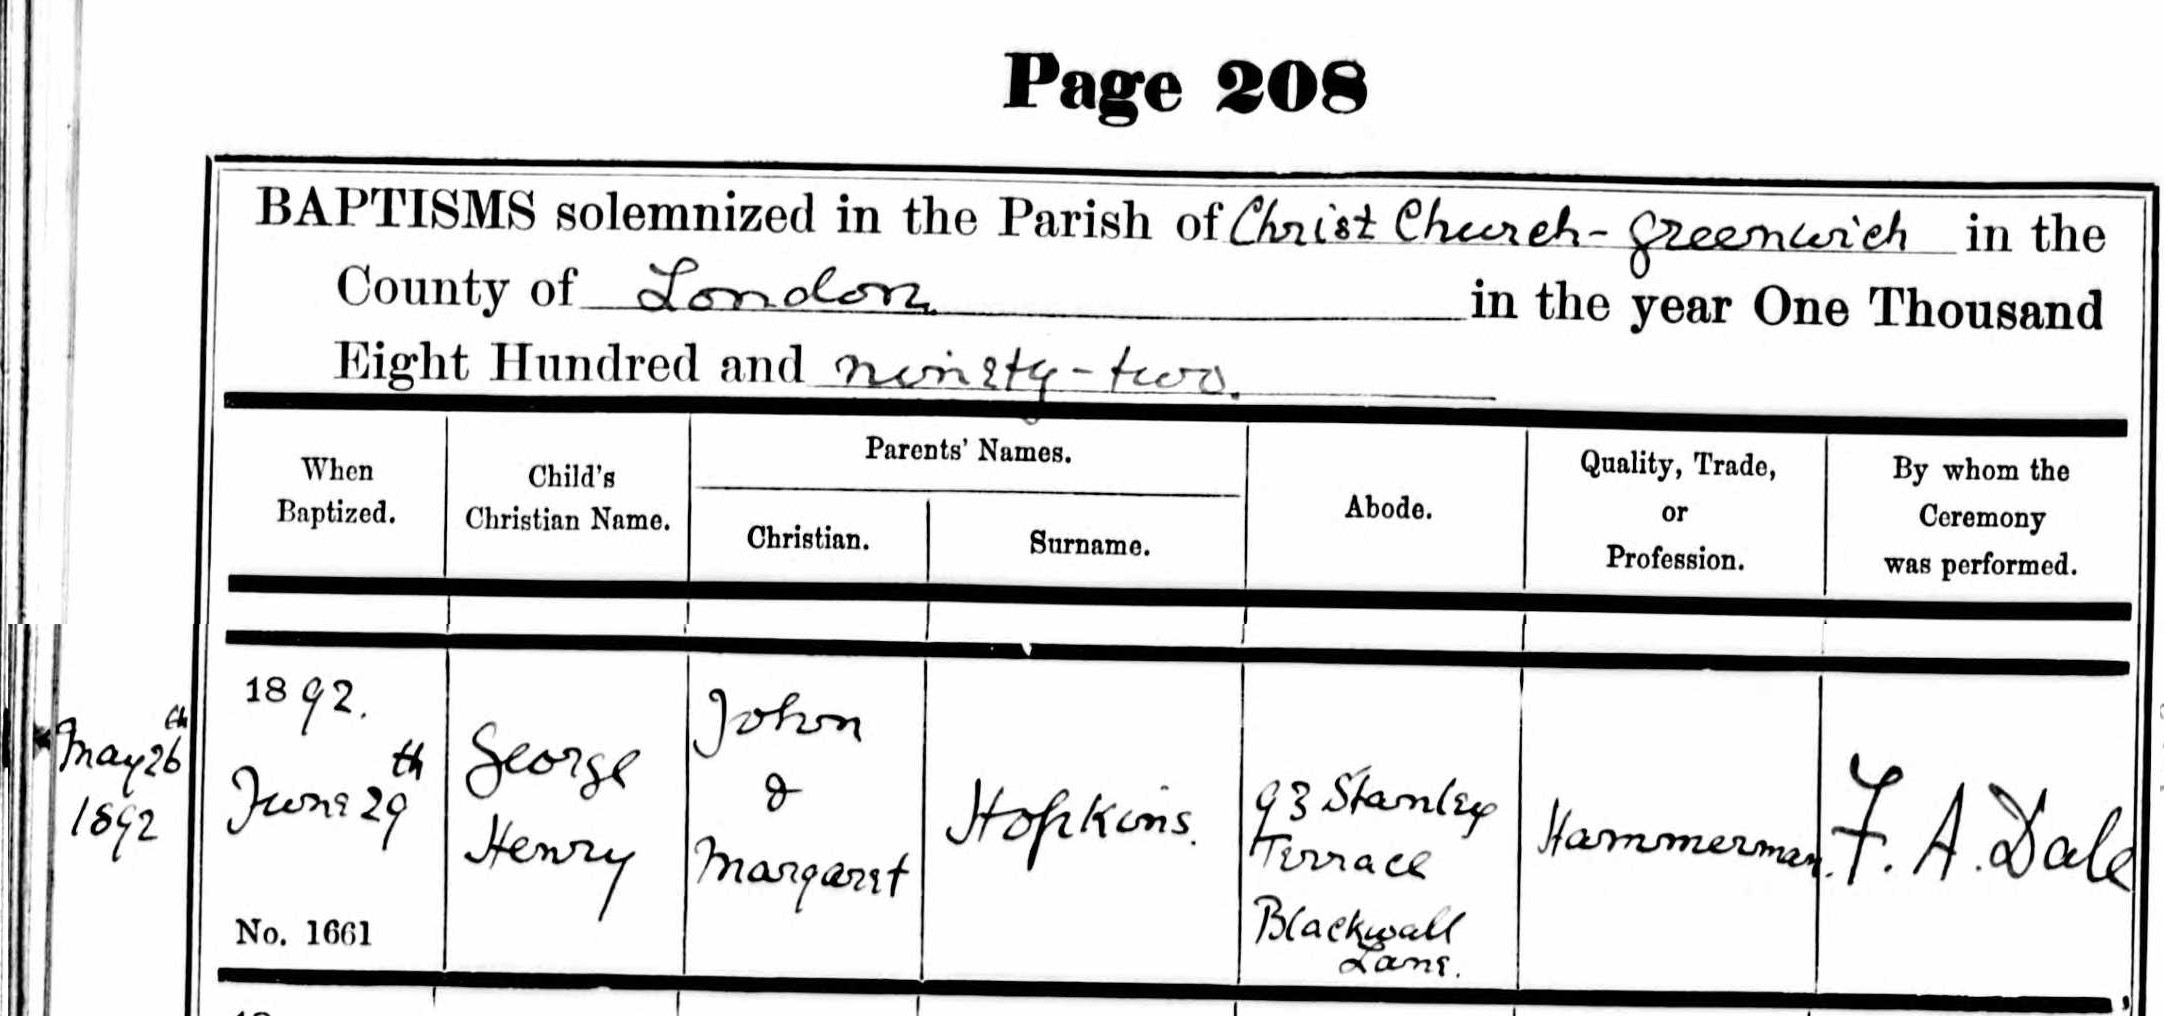 Page 208
BAPTISMS solemnized in the Parish of Christ Church - Greenwich in the
County of London in the year One Thousand
Eight Hundred and ninety-two.
When
Baptized.
Child's
Christian Name.
Parents' Names.
Christian.
Surname.
Abode.
Quality, Trade,
or
Profession.
By whom the
Ceremony
was performed.
May 26th
1892
1892.
June 29th
No. 1661
George
Henry
John
&
Margaret
Hopkins.
93 Stanley
Terrace
Blackwall
Lane.
Hammerman.
F. A. Dale